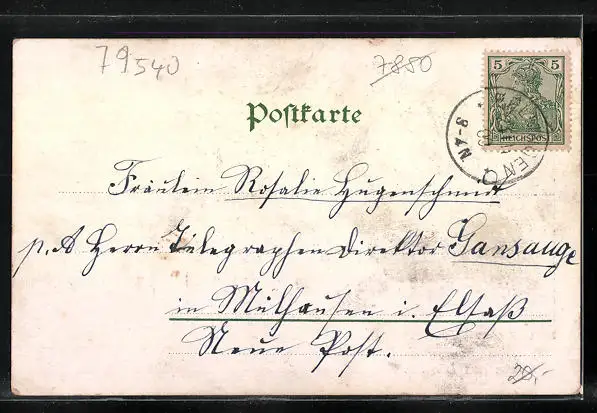 79540
7880
5 5
REICHSPOST
3-4 N
Postkarte
Fräulein Rosalie Hugenschmidt
p. A Herrn Telegraphen Direktor Gansauge
in Mülhausen i. Elsaß
Neue Post.